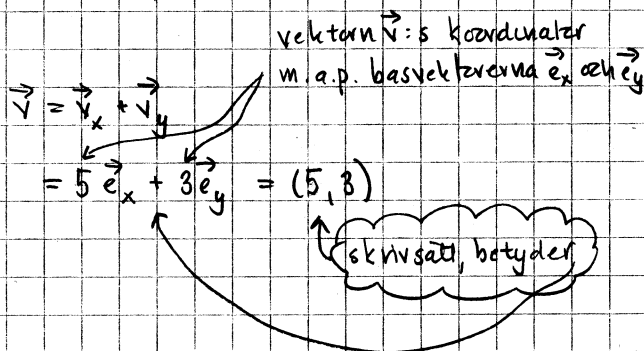 vektorn v⃗:s koordinater
m.a.p. basvektorerna e⃗ₓ och e⃗_y
v⃗ = v⃗ₓ + v⃗_y
= 5 e⃗ₓ + 3 e⃗_y = (5, 3)
skrivsätt, betyder